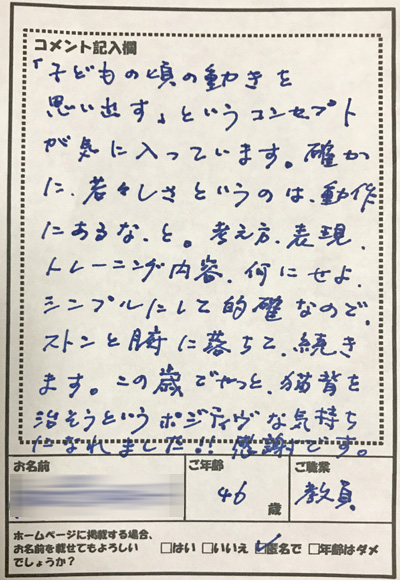 コメント記入欄
「子どもの頃の動きを
思い出す」というコンセプト
が気に入っています。確か
に、若々しさというのは、動作
にあるな、と。考え方、表現、
トレーニング内容、何にせよ、
シンプルにして的確なので、
ストンと腑に落ちて、続き
ます。この歳でやっと、猫背を
治そうというポジティヴな気持ち
になれました!! 感謝です。
お名前 ご年齢 ご職業
46歳 教員
ホームページに掲載する場合、
お名前を載せてもよろしい
でしょうか? □はい □いいえ ☑匿名で □年齢はダメ